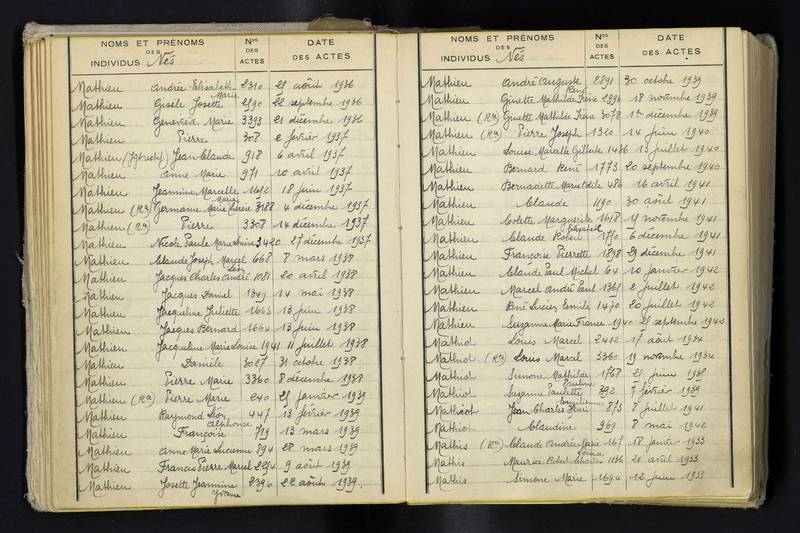 NOMS ET PRÉNOMS
DES
INDIVIDUS Nés
Nos
DES
ACTES
DATE
DES ACTES
Mathieu Andrée Elisabeth 2310 25 août 1936
Marie
Mathieu Gisèle Josette 2590 22 septembre 1936
Mathieu Geneviève Marie 3393 21 décembre 1936
Mathieu Pierre 308 2 février 1937
Mathieu Jean Claude 918 6 avril 1937
Mathieu Anne Marie 971 10 avril 1937
Mathieu Jeannine Marcelle 1692 18 juin 1937
Marie
Mathieu (Ra) Germaine Marie Thérèse 3188 4 décembre 1937
Mathieu (Ra) Pierre 3308 14 décembre 1937
Mathieu Nicole Paule Marie Louise 3420 27 décembre 1937
Mathieu Claude Joseph Marcel 668 8 mars 1938
Léon
Mathieu Jacques Charles André 1081 20 avril 1938
Mathieu Jacques Daniel 1349 14 mai 1938
Mathieu Jacqueline Juliette 1663 13 juin 1938
Mathieu Jacques Bernard 1664 13 juin 1938
Mathieu Jacqueline Marie Louise 1941 11 juillet 1938
Mathieu Danièle 3027 31 octobre 1938
Mathieu Pierre Marie 3360 8 décembre 1938
Mathieu (Ra) Pierre Marie 240 25 janvier 1939
Mathieu Raymond Léon 447 13 février 1939
Alphonse
Mathieu Françoise 719 13 mars 1939
Mathieu Anne Marie Lucienne 894 28 mars 1939
Mathieu Francis Pierre Marcel 2254 9 août 1939
Mathieu Josette Jeannine 2396 22 août 1939
Yvonne
NOMS ET PRÉNOMS
DES
INDIVIDUS Nés
Nos
DES
ACTES
DATE
DES ACTES
Mathieu André Auguste 2891 30 octobre 1939
René
Mathieu Ginette Mathilde Irène 2996 18 novembre 1939
Mathieu (Ra) Ginette Mathilde Irène 3078 1er décembre 1939
Mathieu (Ra) Pierre Joseph 1320 14 juin 1940
Mathieu Louise Marcelle Gilberte 1436 13 juillet 1940
Mathieu Bernard René 1773 20 septembre 1940
Mathieu Bernadette Marie Odile 486 16 avril 1941
Mathieu Claude 1190 30 août 1941
Mathieu Colette Marguerite 1618 novembre 1941
Elisabeth
Mathieu Claude Robert 1750 6 décembre 1941
Mathieu Françoise Pierrette 1898 29 décembre 1941
Mathieu Claude Paul Michel 64 10 janvier 1942
Mathieu Marcel André Paul 1361 2 juillet 1942
Mathieu René Lucien Emile 1470 20 juillet 1942
Mathieu Suzanne Marie France 1940 25 septembre 1942
Mathiot Louis Marcel 2412 17 août 1934
Mathiot (Ra) Louis Marcel 3360 19 novembre 1934
Mathiot Simone Mathilde 1768 25 juin 1938
Pauline
Mathiot Suzanne Paulette 292 7 février 1939
Emilienne
Mathiot Jean Charles Henri 873 8 juillet 1941
Mathiot Claudine 969 8 mai 1942
Mathis (Ra) Claude Andrée Marie 167 18 janvier 1933
Louise
Mathis Maurice Robert Charles 1136 21 avril 1933
Mathis Simone Marie 1694 12 juin 1933